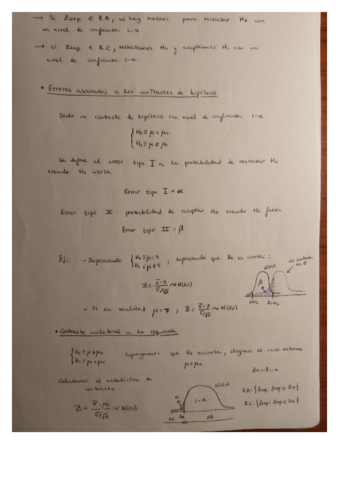 → Si Zexp ∈ R.A, no hay motivos para rechazar H₀ con
un nivel de confianza 1-α
→ Si Zexp ∈ R.C, rechazamos H₀ y aceptamos H₁ con un
nivel de confianza 1-α
• Errores asociados a los contrastes de hipótesis
Dado un contraste de hipótesis con nivel de confianza 1-α
{ H₀ ≡ μ = μ₀
H₁ ≡ μ ≠ μ₀
Se define el error tipo I a la probabilidad de rechazar H₀
siendo H₀ cierta
Error tipo I = α
Error tipo II = probabilidad de aceptar H₀ siendo H₀ falsa
Error tipo II = β
Ej: - Suponiendo { H₀ ≡ μ = 5
H₁ ≡ μ ≠ 5 , suponiendo que H₀ es cierta:
N(0,1)
β
- Si en realidad μ = 7,
• Contraste unilateral a la izquierda
{ H₀ ≡ μ ≥ μ₀
H₁ ≡ μ < μ₀
Supongamos que H₀ es cierta,
μ = μ₀
Calculamos el estadístico de
contraste
N(0,1)
α
1-α
RC
RA